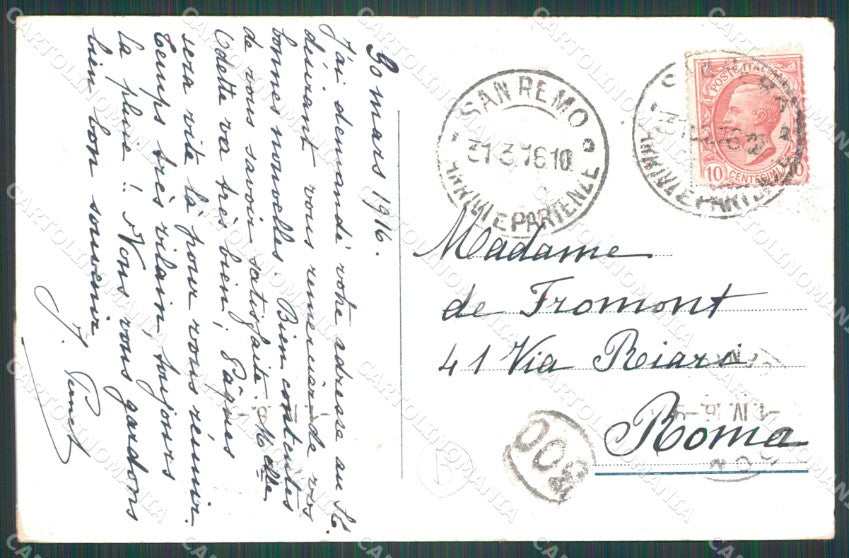 30 mars 1916.
J'ai demandé votre adresse au St.
désirant vous remercier de vos
bonnes nouvelles. Bien contentes
de vous savoir satisfaite. Melle
Odette va très bien; Pâques
sera vite là pour vous réunir.
Temps très vilain, toujours
la pluie! Nous vous gardons
bien bon souvenir
SAN REMO
31.3.16.10
ARRIVI E PARTENZE
ARRIVI E PARTENZE
POSTE ITALIANE
10 CENTESIMI 10
Madame
de Fromont
41 Via Riari
Roma
-1.IV.16
ROMA
CARTOLINOMANIA